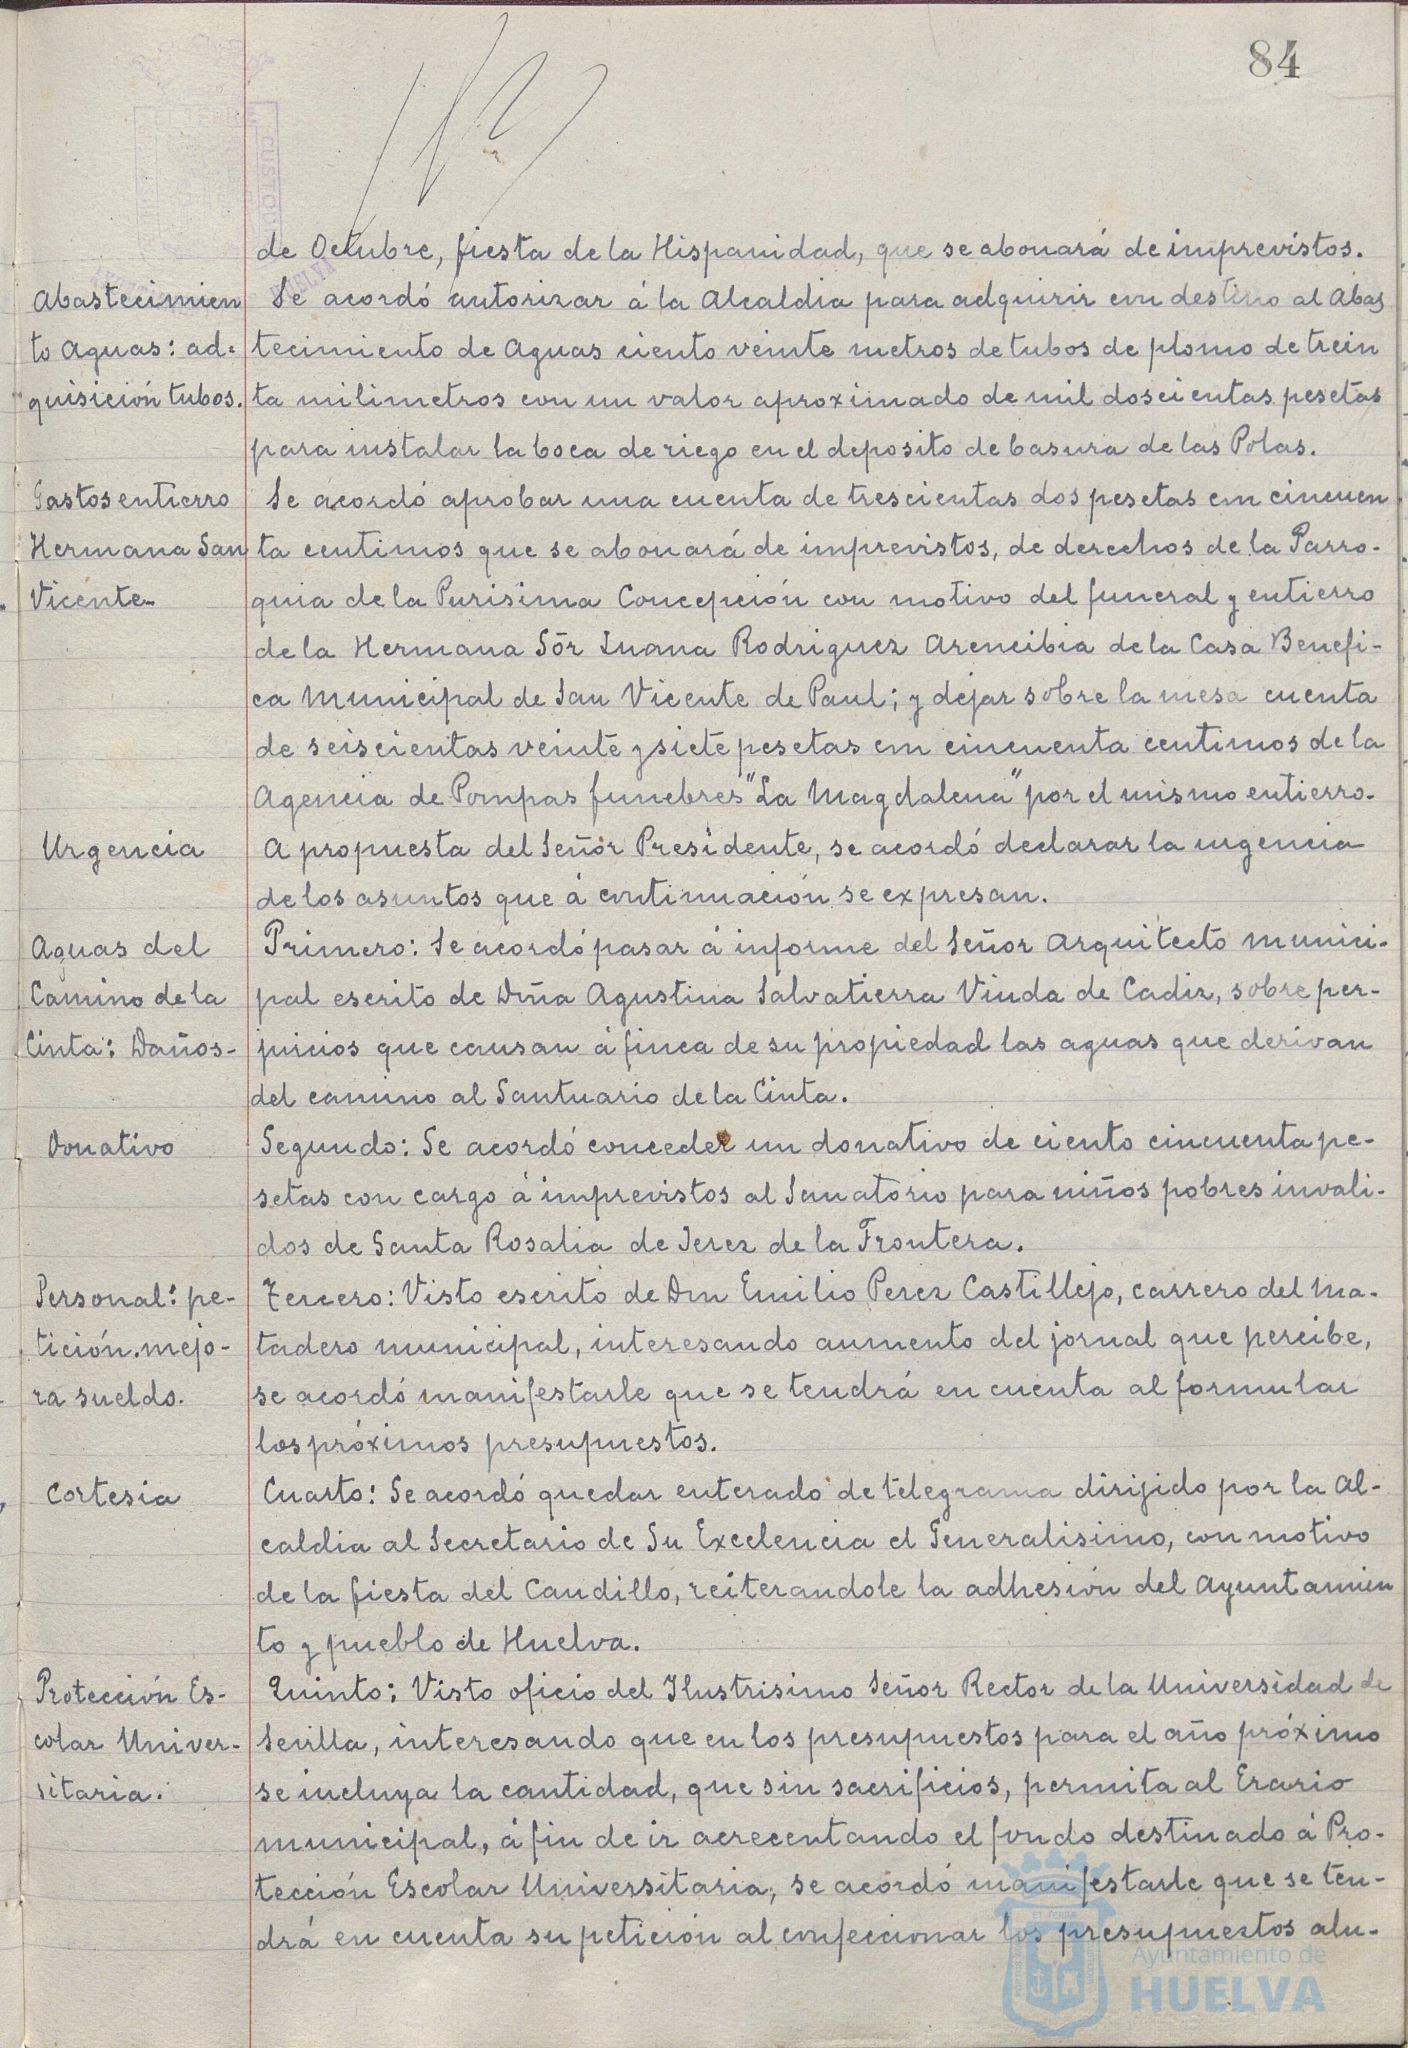 84
de Octubre, fiesta de la Hispanidad, que se abonará de imprevistos.
Abastecimien
to Aguas: ad-
quisición tubos.
Se acordó autorizar á la Alcaldia para adquirir con destino al Abas
tecimiento de Aguas ciento veinte metros de tubos de plomo de trein
ta milimetros con un valor aproximado de mil doscientas pesetas
para instalar la boca de riego en el deposito de basura de las Polas.
Gastos entierro
Hermana San
Vicente-
Se acordó aprobar una cuenta de trescientas dos pesetas con cincuen
ta centimos que se abonará de imprevistos, de derechos de la Parro-
quia de la Purisima Concepción con motivo del funeral y entierro
de la Hermana Sór Juana Rodriguez Arencibia de la Casa Benefi-
ca Municipal de San Vicente de Paul; y dejar sobre la mesa cuenta
de seiscientas veinte y siete pesetas con cincuenta centimos de la
Agencia de Pompas funebres "La Magdalena" por el mismo entierro.
Urgencia
A propuesta del Señor Presidente, se acordó declarar la urgencia
de los asuntos que á continuación se expresan.
Aguas del
Camino de la
Cinta: Daños-
Primero: Se acordó pasar á informe del Señor Arquitecto munici-
pal escrito de Doña Agustina Salvatierra Viuda de Cadiz, sobre per-
juicios que causan á finca de su propiedad las aguas que derivan
del camino al Santuario de la Cinta.
Donativo
Segundo: Se acordó conceder un donativo de ciento cincuenta pe-
setas con cargo á imprevistos al Sanatorio para niños pobres invali-
dos de Santa Rosalia de Jerez de la Frontera.
Personal: pe-
tición mejo-
ra sueldo.
Tercero: Visto escrito de Don Emilio Perez Castillejo, carrero del Ma-
tadero municipal, interesando aumento del jornal que percibe,
se acordó manifestarle que se tendrá en cuenta al formular
los próximos presupuestos.
Cortesia
Cuarto: Se acordó quedar enterado de telegrama dirijido por la Al-
caldia al Secretario de Su Excelencia el Generalisimo, con motivo
de la fiesta del Caudillo, reiterandole la adhesión del Ayuntamien
to y pueblo de Huelva.
Protección Es-
colar Univer-
sitaria.
Quinto: Visto oficio del Ilustrisimo Señor Rector de la Universidad de
Sevilla, interesando que en los presupuestos para el año próximo
se incluya la cantidad, que sin sacrificios, permita al Erario
municipal, á fin de ir acrecentando el fondo destinado á Pro-
tección Escolar Universitaria, se acordó manifestarle que se ten-
drá en cuenta su petición al confeccionar los presupuestos alu-
Ayuntamiento de
HUELVA